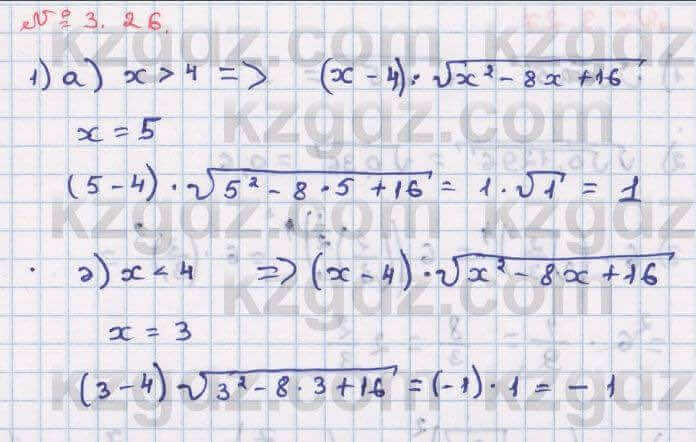 № 3. 26.
1) а) x > 4 => (x - 4) · √x² - 8x + 16
x = 5
(5 - 4) · √5² - 8 · 5 + 16 = 1 · √1 = 1
ә) x < 4 => (x - 4) · √x² - 8x + 16
x = 3
(3 - 4) √3² - 8 · 3 + 16 = (-1) · 1 = - 1
kzgdz.com
kzgdz.com
kzgdz.com
kzgdz.com
kzgdz.com